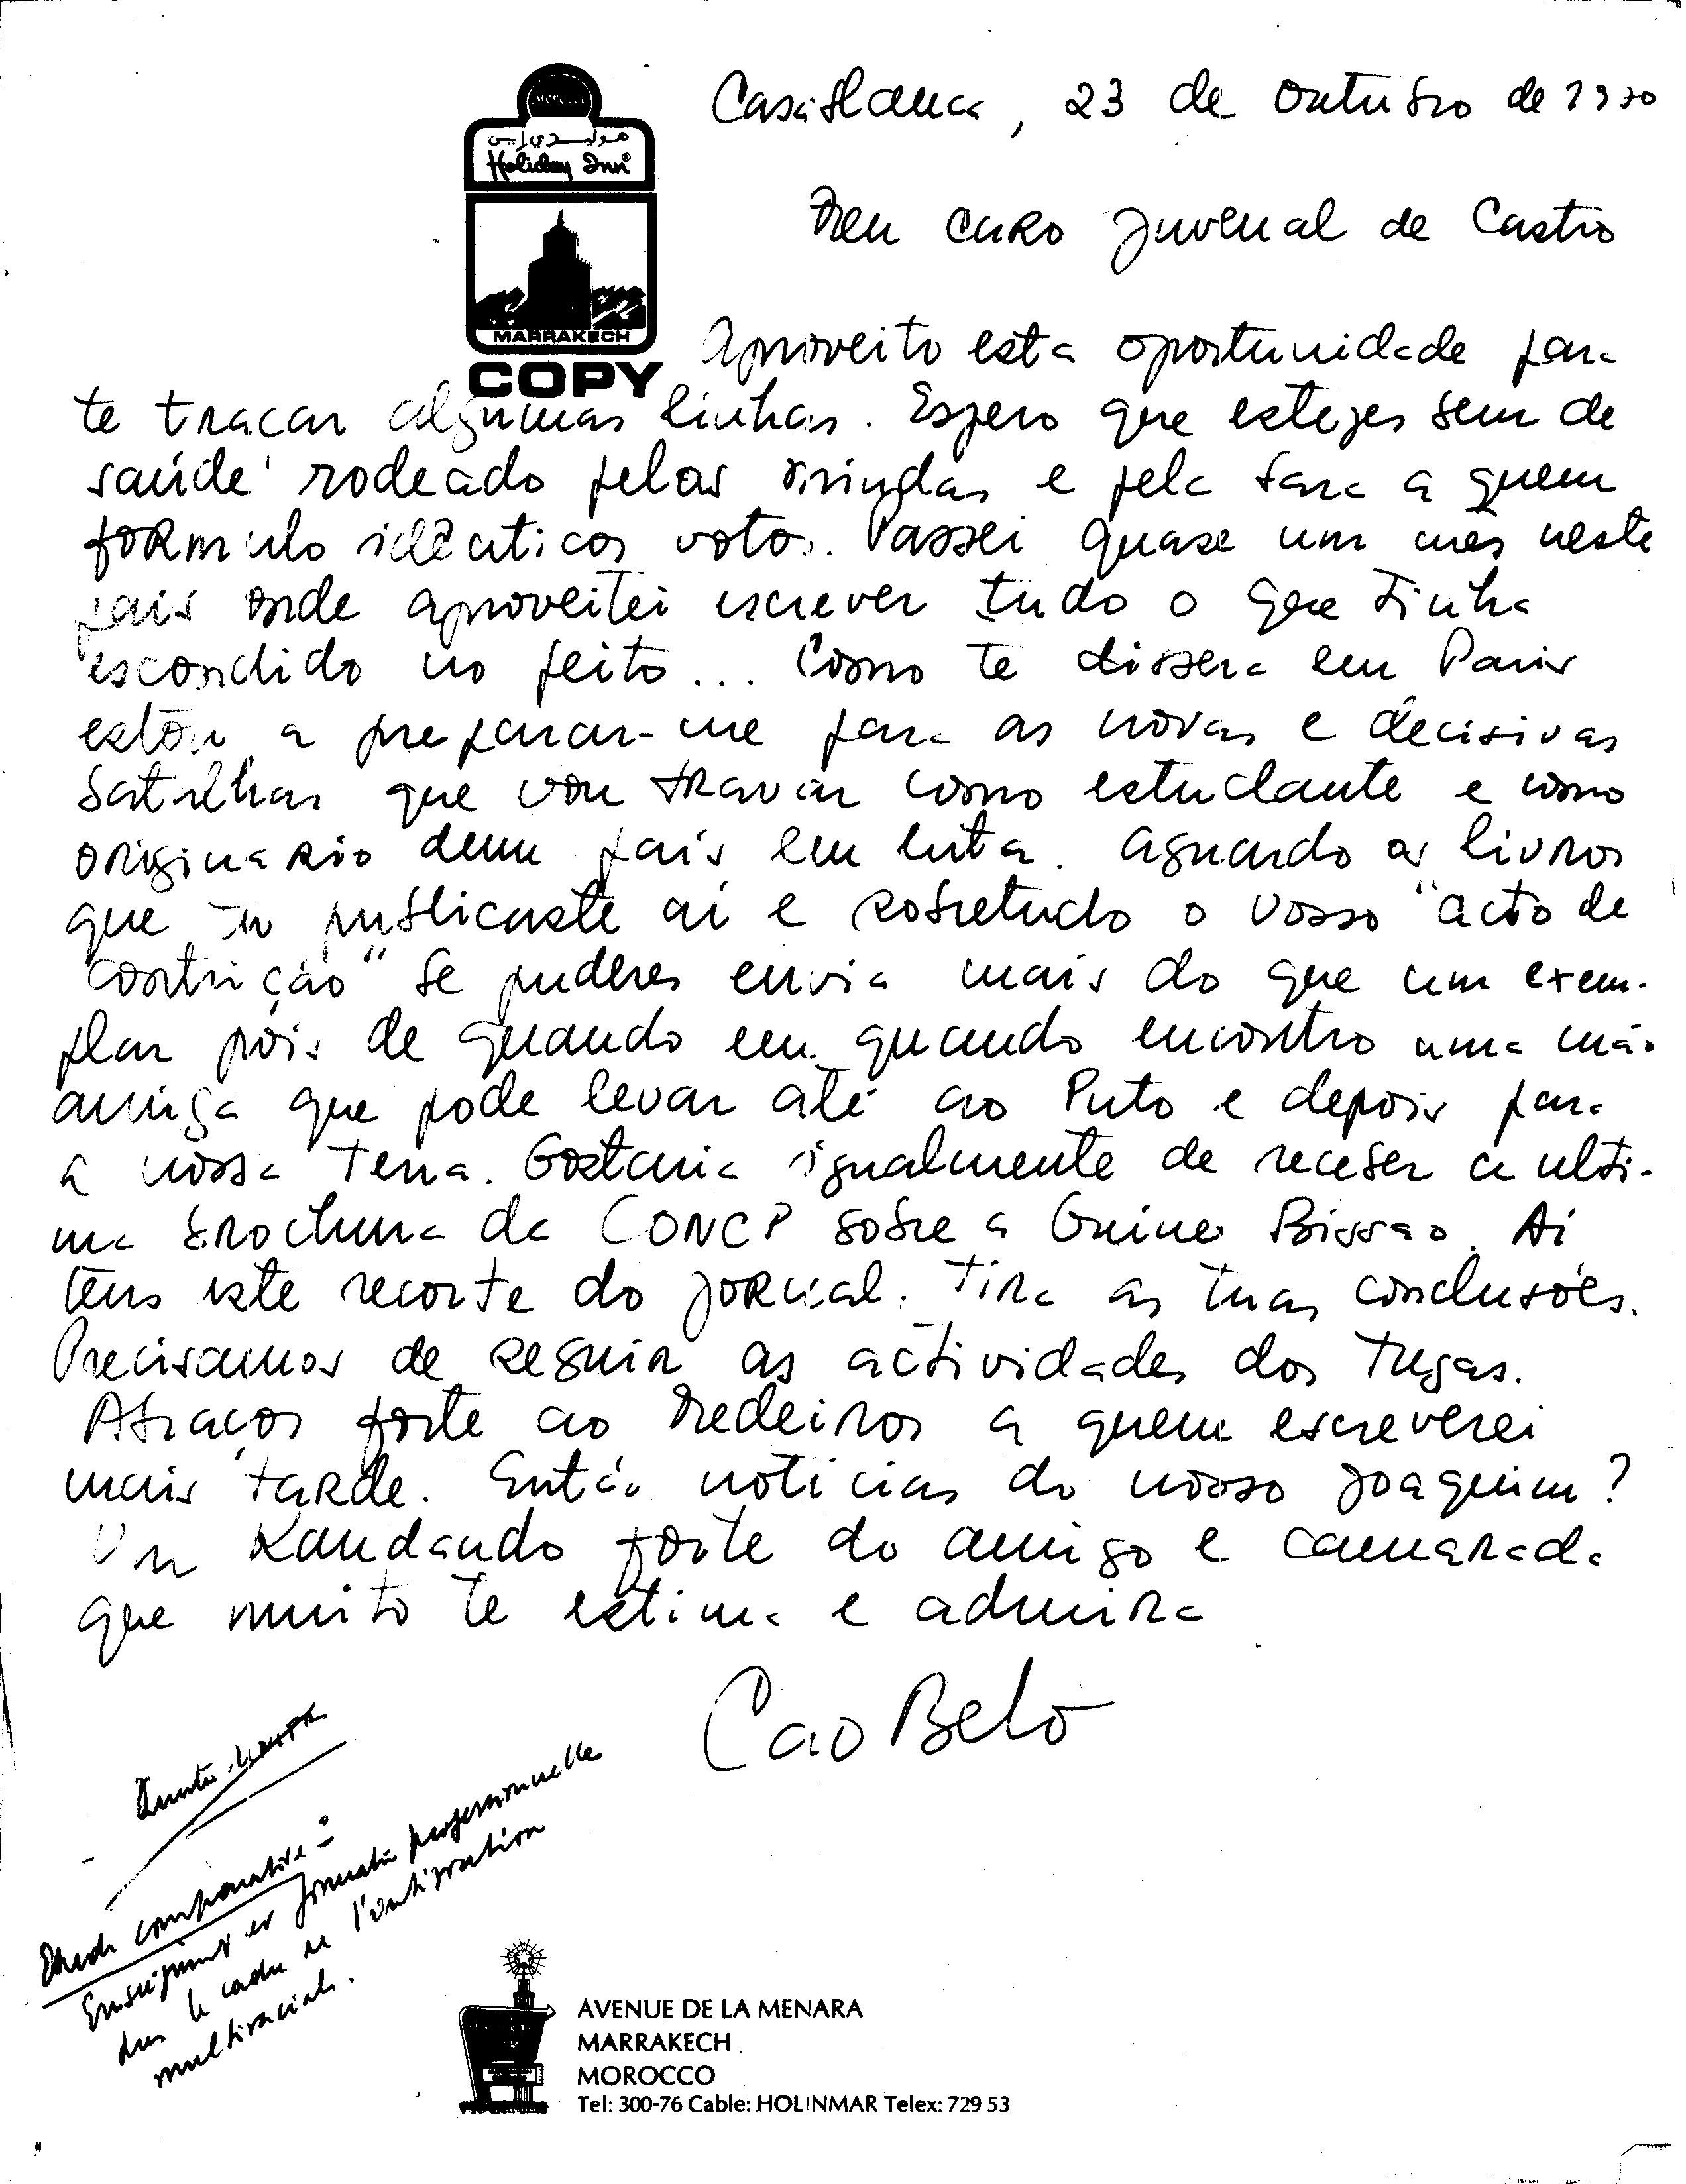 Morocco
هوليدي إين
Holiday Inn®
MARRAKECH
COPY
Casablanca, 23 de Outubro de 1970
Meu caro Juvenal de Castro
Aproveito esta oportunidade para
te traçar algumas linhas. Espero que estejas bem de
saúde rodeado pelas e pela Sara a quem
formulo idênticos votos. Passei quase um mês neste
pais onde aproveitei escrever tudo o que tinha
escondido no peito... Como te dissera em Paris
estou a preparar-me para as novas e decisivas
batalhas que vou travar como estudante e como
originario dum país em luta. Aguardo os livros
que tu publicaste aí e sobretudo o vosso "acto de
contrição" Se puderes envia mais do que um exem-
plar pois de quando em quando encontro uma mão
amiga que pode levar até ao Puto e depois para
a nossa Terra. Gostaria igualmente de receber a ulti-
ma brochura da CONCP sobre a Guiné Bissao. Ai
tens este recorte do jornal. Tira as tuas conclusões.
Precisamos de seguir as actividades dos Tugas.
Abraços forte ao Medeiros a quem escreverei
mais tarde. Então noticias do nosso Joaquim?
Um Kandando forte do amigo e camarada
que muito te estima e admira
Cao Belo
Etude comparative:
Enseignement et formation professionnelle
dans le cadre de l'intégration
multiraciale.
AVENUE DE LA MENARA
MARRAKECH
MOROCCO
Tel: 300-76 Cable: HOLINMAR Telex: 729 53